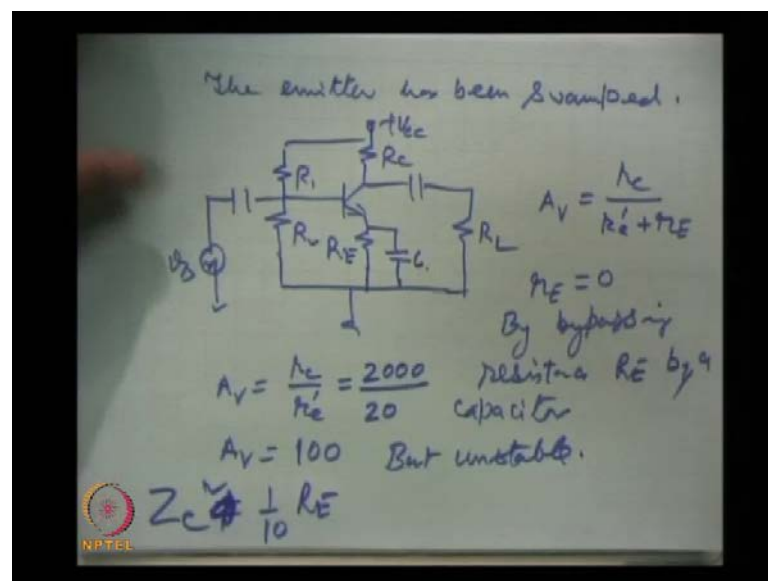 The emitter has been Swamped.
+Vcc
R1
RC
RE
C1
RL
vs
AV = rc / r'e + rE
rE = 0
By bypassing
resistance RE by a
capacitor
AV = rc / r'e = 2000 / 20
AV = 100 But unstable.
Zc 1/10 RE
NPTEL